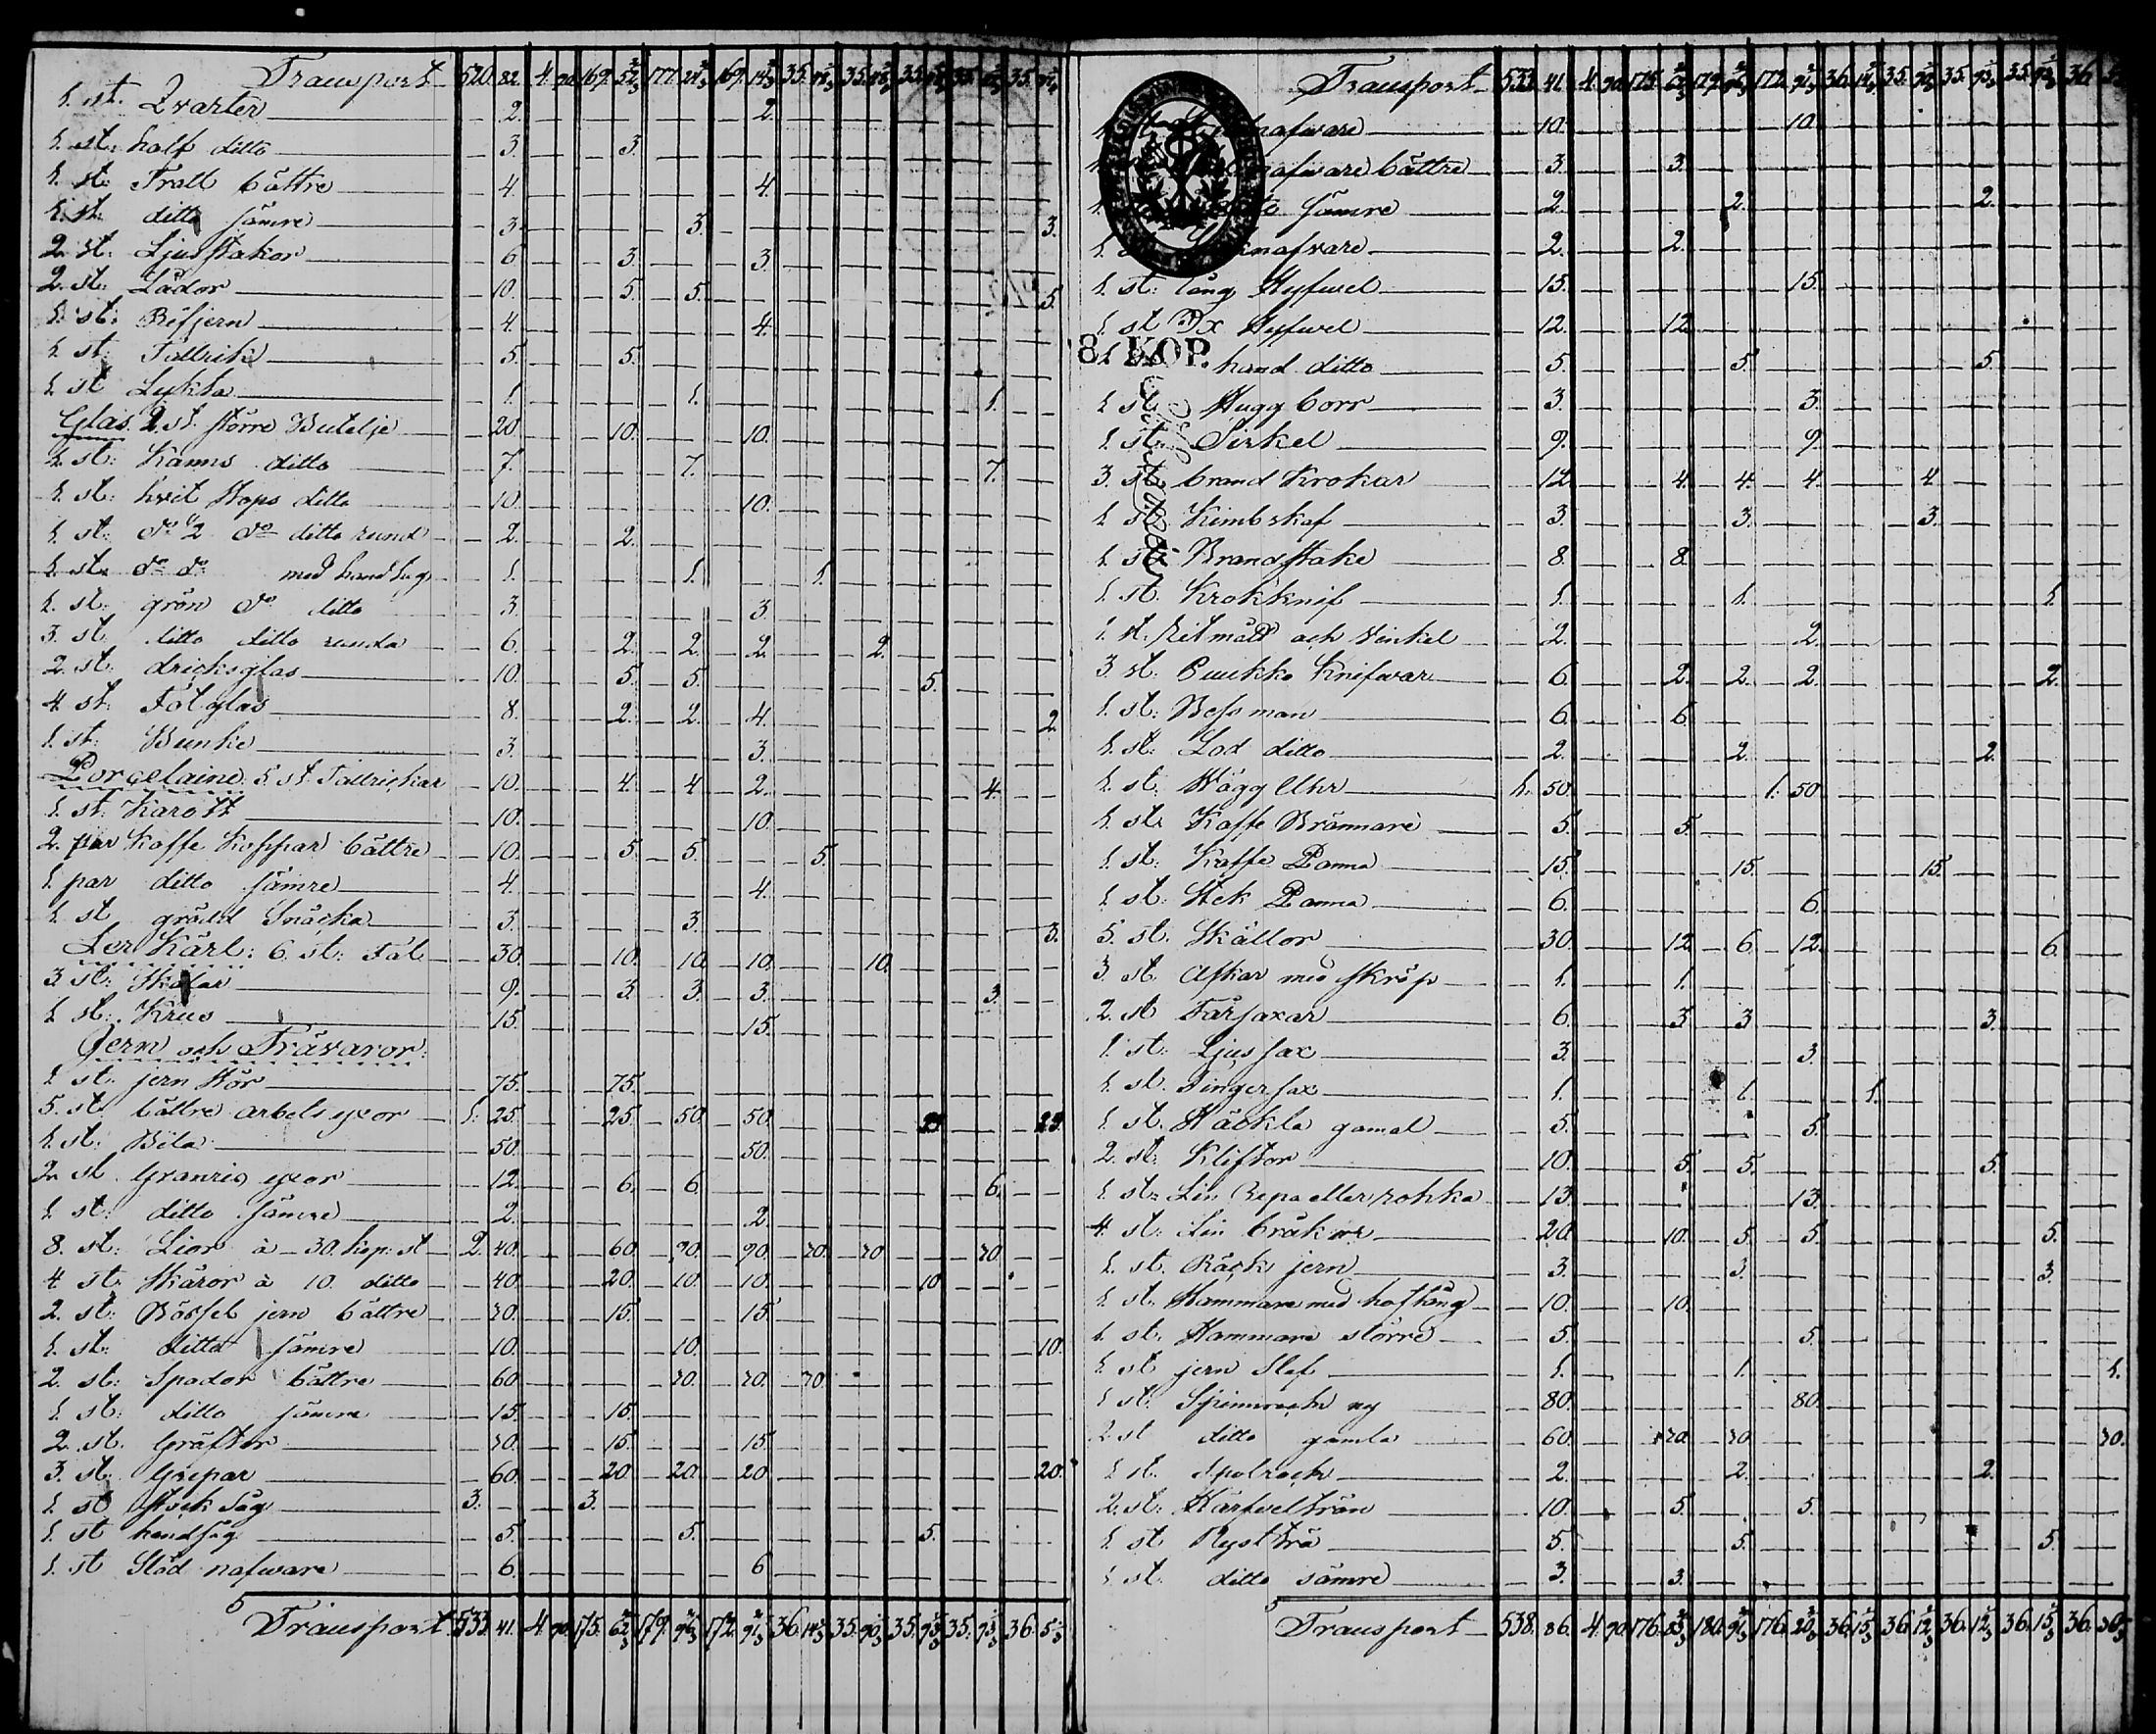 Transport 520. 82. 4. 90. 169. 177. 169. 35. 35. 35. 35. 35.
1. st. Qvarter 2. 2.
1. st: half ditto 3. 3.
1. st: Tratt bättre 4. 4.
1. st: ditto sämre 3. 3. 3.
2. st: Ljusstakor 6 3. 3.
2. st: Lådor 10. 5. 5. 5.
1. st: Rifjern 4. 4.
1. st: Tallrik 5. 5.
1. st Lykta 1. 1. 1.
Glas. 2. st. större Butelje 20 10. 10.
1. st: Kanns ditto 7. 7. 7.
1. st: hvit Stops ditto 10. 10.
1. st: do 1/2 do ditto rund 2. 2.
1. st: do do med handtag 1. 1. 1.
1. st: grön do ditto 3. 3.
3. st ditto ditto runda 6. 2. 2. 2. 2.
2. st: dricksglas 10. 5. 5. 5.
4 st: Fotglas 8. 2. 2. 4. 2.
1. st: Bunke 3. 3.
Porcelaine. 5 st Tallrickar 10. 4. 4 2. 4.
1. st: Karott 10. 10.
2. par Kaffe Koppar bättre 10. 5. 5. 5.
1. par ditto sämre 4. 4.
1. st grädd Snäcka 3. 3. 3.
Ler Kärl: 6. st: Fat 30. 10. 10. 10. 10.
3 st: Skålar 9. 3. 3. 3. 3.
1 st: Krus 15. 15.
Jern och Trävaror:
1. st. jern Stör 75. 75.
5. st. bättre arbets yxor 1. 25. 25. 50. 50. 25. 25.
1. st: Bila 50. 50.
2. st. Granris yxor 12. 6. 6. 6.
1. st: ditto sämre 2. 2
8. st: Lior à 30. kop: st 2. 40. 60. 90. 90. 30. 30. 30.
4 st: Skäror à 10. ditto 40. 20. 10. 10. 10.
2. st: jern bättre 30. 15. 15.
1. st: ditto sämre 10. 10. 10.
2. st: Spador bättre 60. 30. 30. 30.
1. st: ditto sämre 15. 15.
2. st. Gräftor 30. 15. 15.
3. st. Grepar 60. 20. 20. 20 20.
1. st Stock Såg 3. 3.
1. st handsåg 5. 5. 5.
1. st Stöd nafware 6. 6
Transport. 533. 41. 4. 90. 175. 179. 172. 36. 35. 35. 35. 36.
Transport 533. 41. 4. 90. 175. 179. 172. 36. 35. 35. 35. 36
nafware 10. 10.
nafware bättre 3. 3.
ditto sämre 2. 2. 2.
nafvare 2. 2.
1. st: lång Hyfwel 15. 15.
1. st Hyfwel 12. 12
8 KOP.
hand ditto 5. 5. 5.
1. st Hugg borr 3. 3.
1. st: Sirkel 9. 9.
3. st brand Krokar 12. 4. 4. 4. 4
1. st Kimbskaf 3. 3. 3.
1. st: Brandstake 8. 8.
1. st. Krokknif 1. 1. 1.
1. st. Ritmått och Vinkel 2. 2.
3. st. Puukko Knifwar 6. 2. 2. 2. 2.
1. st: Bessman 6. 6.
1. st: Lod ditto 2. 2. 2.
1. st: Wägg Uhr 1. 50. 1. 50
1. st: Kaffe Brännare 5. 5.
1. st: Kaffe Panna 15. 15. 15.
1. st: Stek Panna 6. 6.
5. st. Skällor 30. 12. 6. 12. 6.
3 st. Askar med skräp 1. 1.
2. st Fårsaxar 6. 3 3. 3.
1. st: Ljus sax 3. 3.
1. st. Finger sax 1. 1. 1.
1 st. Häckla gamal 5. 5.
2. st: Kliftor 10. 5. 5. 5.
1. st: Lin Repa eller rohka 13. 13.
4. st: Lin bråkor 20. 10. 5. 5. 5.
1. st. Räck jern 3. 3. 3.
1. st. Hammare med hoftång 10. 10.
1. st. Hammare större 5. 5.
1. st jern Slef 1. 1. 1.
1 st. Spinnrock ny 80. 80.
2 st ditto gamla 60. 30. 30. 30.
1 st. Spolrock 2. 2. 2.
2. st: 10. 5. 5.
1 st 5. 5. 5.
1 st. ditto sämre 3. 3.
Transport 538. 86. 4. 90. 176. 180. 176. 36. 36. 36. 36. 36.